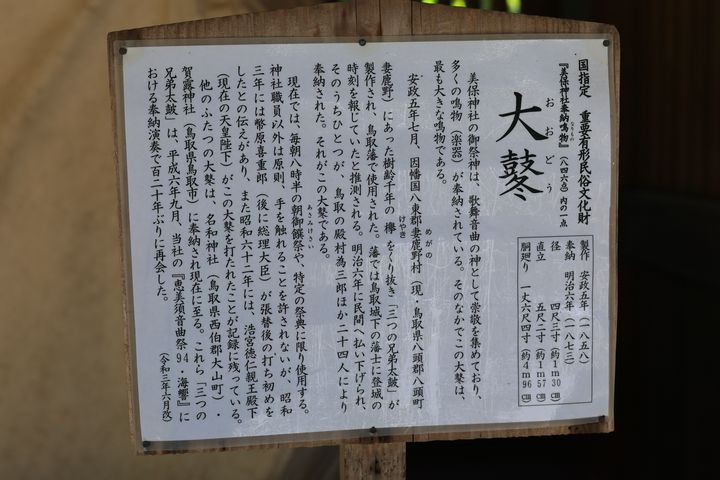 国指定　重要有形民俗文化財
『美保神社奉納鳴物』（八四六点）内の一点
大鼕
おおどう
製作　安政五年（一八五八）
奉納　明治六年（一八七三）
径　四尺三寸（約1m30㎝）
直立　五尺二寸（約1m57㎝）
胴廻り　一丈六尺四寸（約4m96㎝）
美保神社の御祭神は、歌舞音曲の神として崇敬を集めており、
多くの鳴物（楽器）が奉納されている。そのなかでこの大鼕は、
最も大きな鳴物である。
安政五年七月、因幡国八東郡妻鹿野村（現・鳥取県八頭郡八頭町
めがの
妻鹿野）にあった樹齢千年の欅をくり抜き「三つの兄弟太鼓」が
けやき
製作され、鳥取藩で使用された。藩では鳥取城下の藩士に登城の
時刻を報じていたと推測される。明治六年に民間へ払い下げられ、
そのうちひとつが、鳥取の殿村為三郎ほか二十四人により
奉納された。それがこの大鼕である。
現在では、毎朝八時半の朝御饌祭や、特定の祭典に限り使用する。
あさみけさい
神社職員以外は原則、手を触れることを許されないが、昭和
三年には幣原喜重郎（後に総理大臣）が張替後の打ち初めを
したとの伝えがあり、また昭和六十二年には、浩宮徳仁親王殿下
（現在の天皇陛下）がこの大鼕を打たれたことが記録に残っている。
他のふたつの大鼕は、名和神社（鳥取県西伯郡大山町）・
賀露神社（鳥取県鳥取市）に奉納され現在に至る。これら「三つの
兄弟太鼓」は、平成六年九月、当社の『恵美須音曲祭94・海響』に
おける奉納演奏で百二十年ぶりに再会した。
（令和三年六月改）